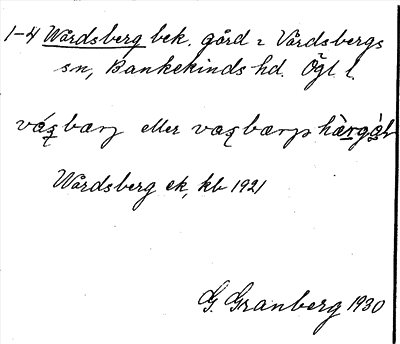 1-4 Wårdsberg bek. gård i Vårdsbergs
sn, Bankekinds hd. Ögl l.
eller
Wårdsberg ek, kb 1921
G. Granberg 1930